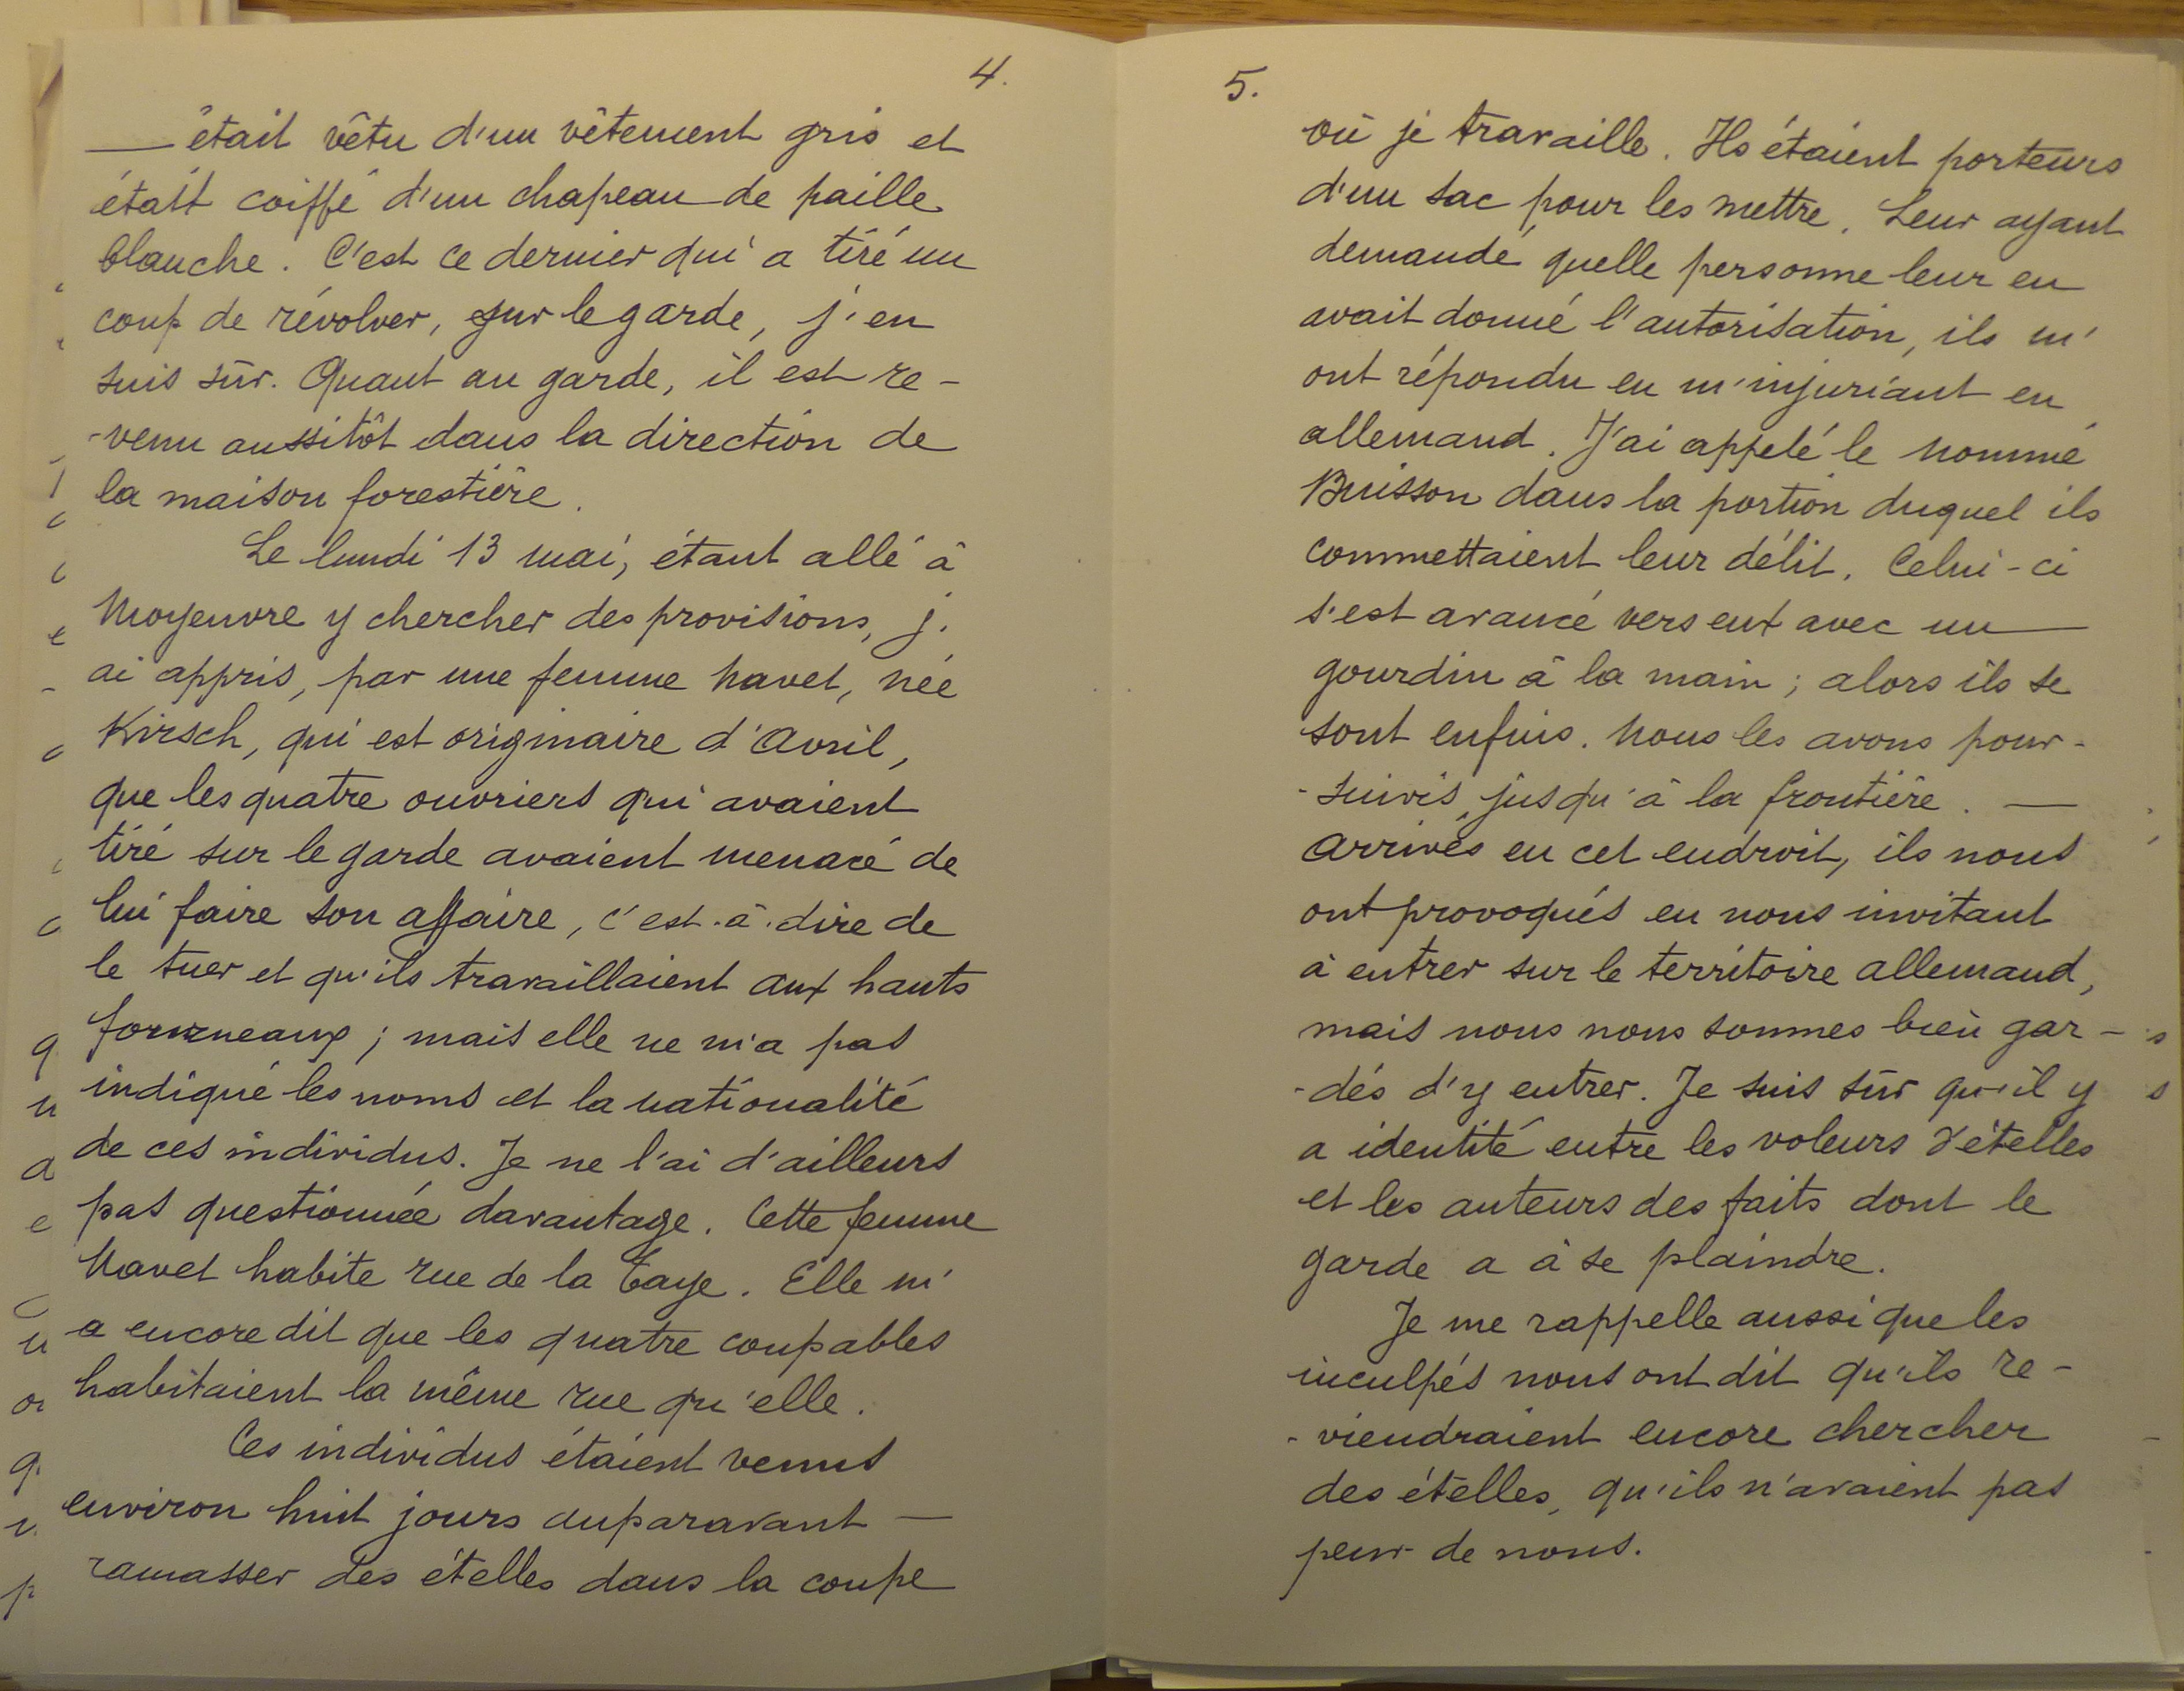 4.
— était vêtu d'un vêtement gris et
était coiffé d'un chapeau de paille
blanche. C'est ce dernier qui a tiré un
coup de révolver, sur le garde, j'en
suis sûr. Quant au garde, il est re-
-venu aussitôt dans la direction de
la maison forestière.
Le lundi 13 mai, étant allé à
Moyeuvre y chercher des provisions, j'
ai appris, par une femme Navel, née
Kirsch, qui est originaire d'Avril,
que les quatre ouvriers qui avaient
tiré sur le garde avaient menacé de
lui faire son affaire, c'est-à-dire de
le tuer et qu'ils travaillaient aux hauts
fourneaux ; mais elle ne m'a pas
indiqué les noms et la nationalité
de ces individus. Je ne l'ai d'ailleurs
pas questionnée davantage. Cette femme
Navel habite rue de la Taye. Elle m'
a encore dit que les quatre coupables
habitaient la même rue qu'elle.
Ces individus étaient venus
environ huit jours auparavant —
ramasser des ételles dans la coupe
5.
où je travaille. Ils étaient porteurs
d'un sac pour les mettre. Leur ayant
demandé quelle personne leur en
avait donné l'autorisation, ils m'
ont répondu en m'injuriant en
allemand. J'ai appelé le nommé
Buisson dans la portion duquel ils
commettaient leur délit. Celui-ci
s'est avancé vers eux avec un —
gourdin à la main ; alors ils se
sont enfuis. Nous les avons pour-
-suivis jusqu'à la frontière. —
Arrivés en cet endroit, ils nous
ont provoqués en nous invitant
à entrer sur le territoire allemand,
mais nous nous sommes bien gar-
-dés d'y entrer. Je suis sûr qu'il y
a identité entre les voleurs d'ételles
et les auteurs des faits dont le
garde a à se plaindre.
Je me rappelle aussi que les
inculpés nous ont dit qu'ils re-
-viendraient encore chercher
des ételles, qu'ils n'avaient pas
peur de nous.